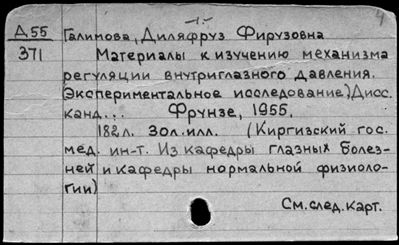 -1-
4
Д55 Галимова, Диляфруз Фирузовна
371 Материалы к изучению механизма
регуляции внутриглазного давления.
(Экспериментальное исследование) Дисс.
канд... Фрунзе, 1955.
182л. 30л. илл. (Киргизский гос.
мед. ин-т. Из кафедры глазных болез-
ней и кафедры нормальной физиоло-
гии)
См. след. карт.